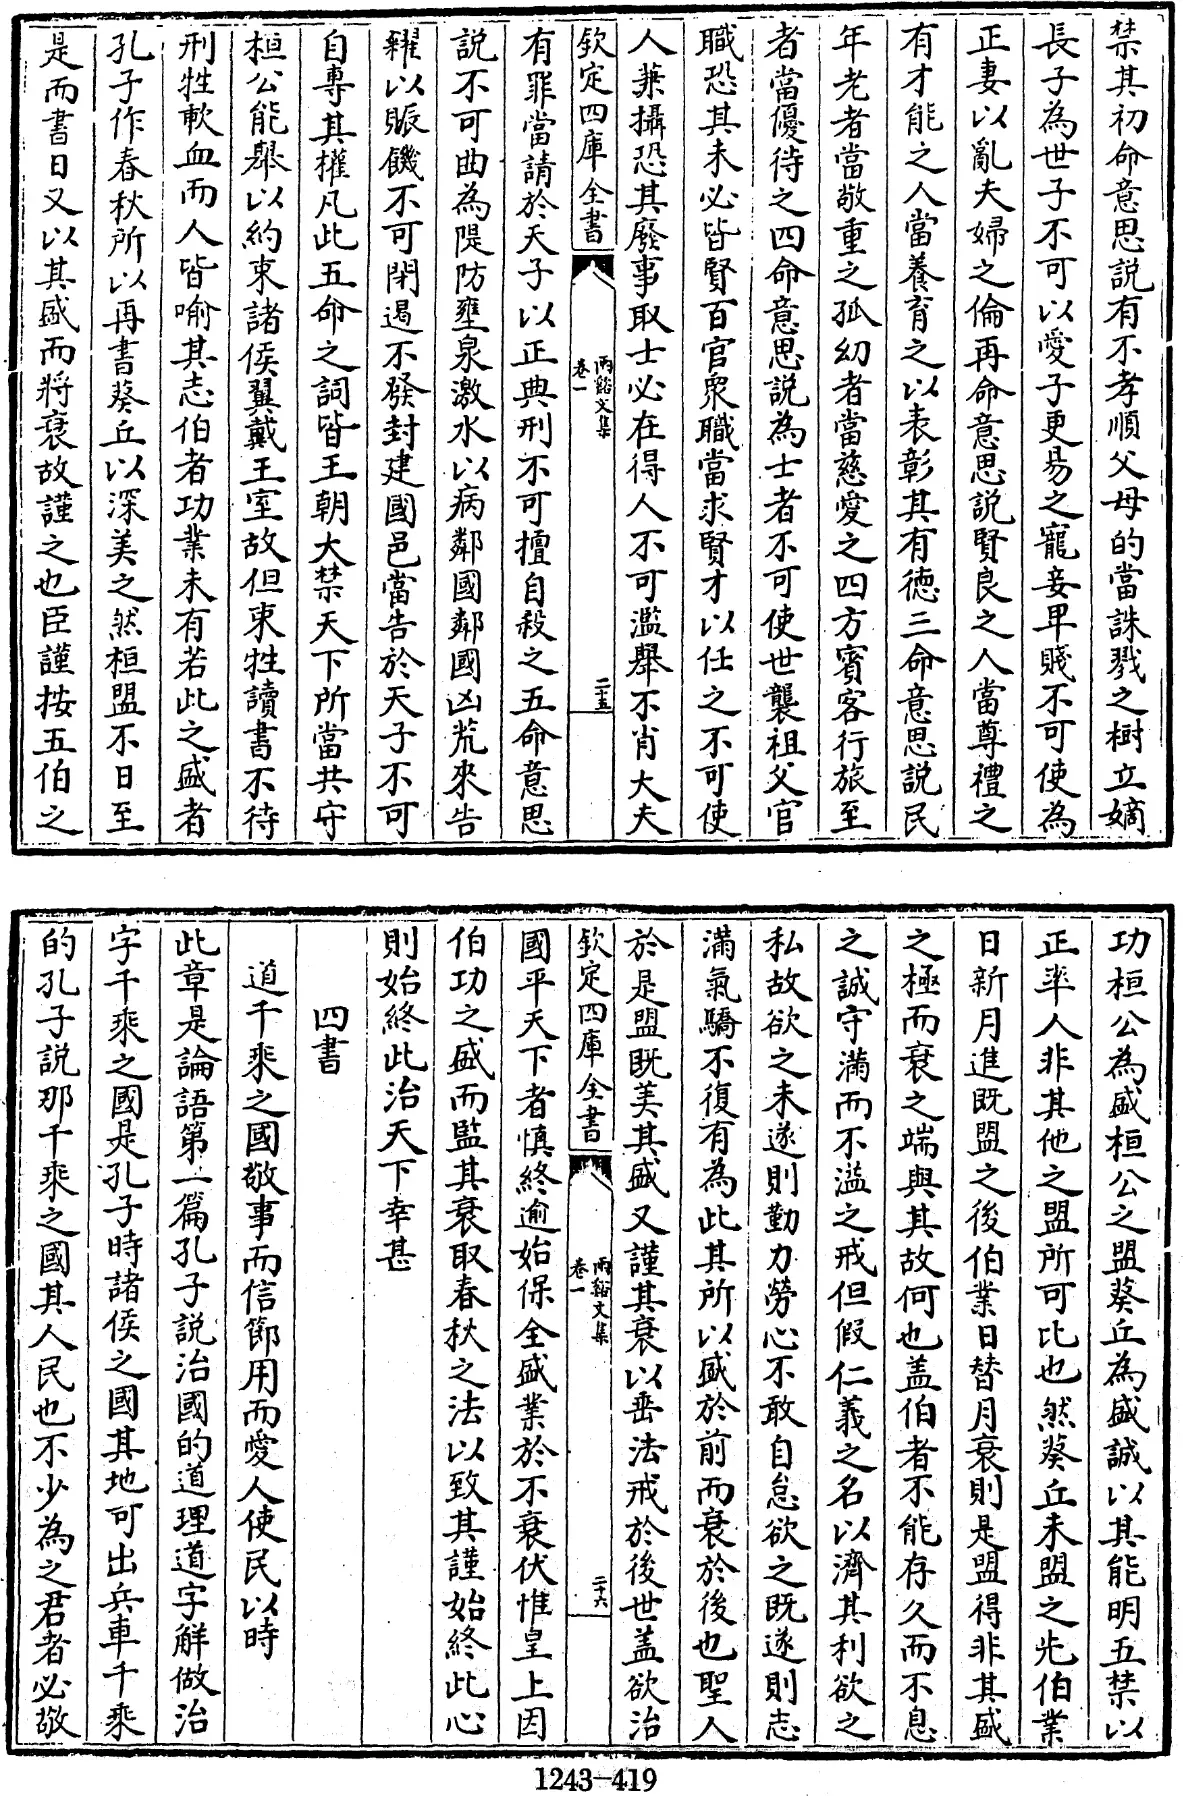 禁其初命意思説有不孝順父母的當誅戮之樹立嫡
長子為世子不可以愛子更易之寵妾卑賤不可使為
正妻以亂夫婦之倫再命意思説賢良之人當尊禮之
有才能之人當養育之以表彰其有德三命意思説民
年老者當敬重之孤幼者當慈愛之四方賓客行旅至
者當優待之四命意思説為士者不可使世襲祖父官
職恐其未必皆賢百官衆職當求賢才以任之不可使
人兼攝恐其廢事取士必在得人不可濫舉不肖大夫
欽定四庫全書
兩谿文集
卷一
二十五
有罪當請於天子以正典刑不可擅自殺之五命意思
説不可曲為隄防壅泉激水以病鄰國鄰國凶荒來告
糴以賑饑不可閉遏不發封建國邑當告於天子不可
自專其權凡此五命之詞皆王朝大禁天下所當共守
桓公能舉以約束諸侯翼戴王室故但束牲讀書不待
刑牲歃血而人皆喻其志伯者功業未有若此之盛者
孔子作春秋所以再書葵丘以深美之然桓盟不日至
是而書日又以其盛而將衰故謹之也臣謹按五伯之
功桓公為盛桓公之盟葵丘為盛誠以其能明五禁以
正率人非其他之盟所可比也然葵丘未盟之先伯業
日新月進既盟之後伯業日替月衰則是盟得非其盛
之極而衰之端與其故何也盖伯者不能存久而不息
之誠守滿而不溢之戒但假仁義之名以濟其利欲之
私故欲之未遂則勤力勞心不敢自怠欲之既遂則志
滿氣驕不復有為此其所以盛於前而衰於後也聖人
於是盟既美其盛又謹其衰以垂法戒於後世盖欲治
欽定四庫全書
兩谿文集
卷一
二十六
國平天下者慎終逾始保全盛業於不衰伏惟皇上因
伯功之盛而監其衰取春秋之法以致其謹始終此心
則始終此治天下幸甚
四書
道千乘之國敬事而信節用而愛人使民以時
此章是論語第一篇孔子説治國的道理道字解做治
字千乘之國是孔子時諸侯之國其地可出兵車千乘
的孔子説那千乘之國其人民也不少為之君者必敬
1243-419